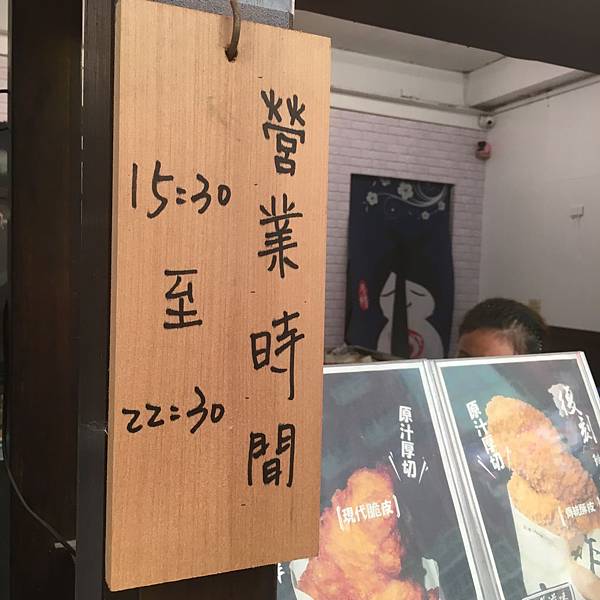 營業時間
15:30
至
22:30
原汁厚切
【現代脆皮】
原汁厚切
復刻